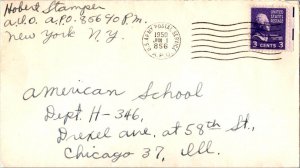 Hobert Stamper
A.S.O. A.P.O. 856 90 P.M.
New York N.Y.
U.S. ARMY POSTAL SERVICE
1950
JUN 1
856
A.P.O.
UNITED STATES POSTAGE
3 CENTS 3
American School
Dept. H-346,
Drexel Ave, at 58th St.,
Chicago 37, Ill.